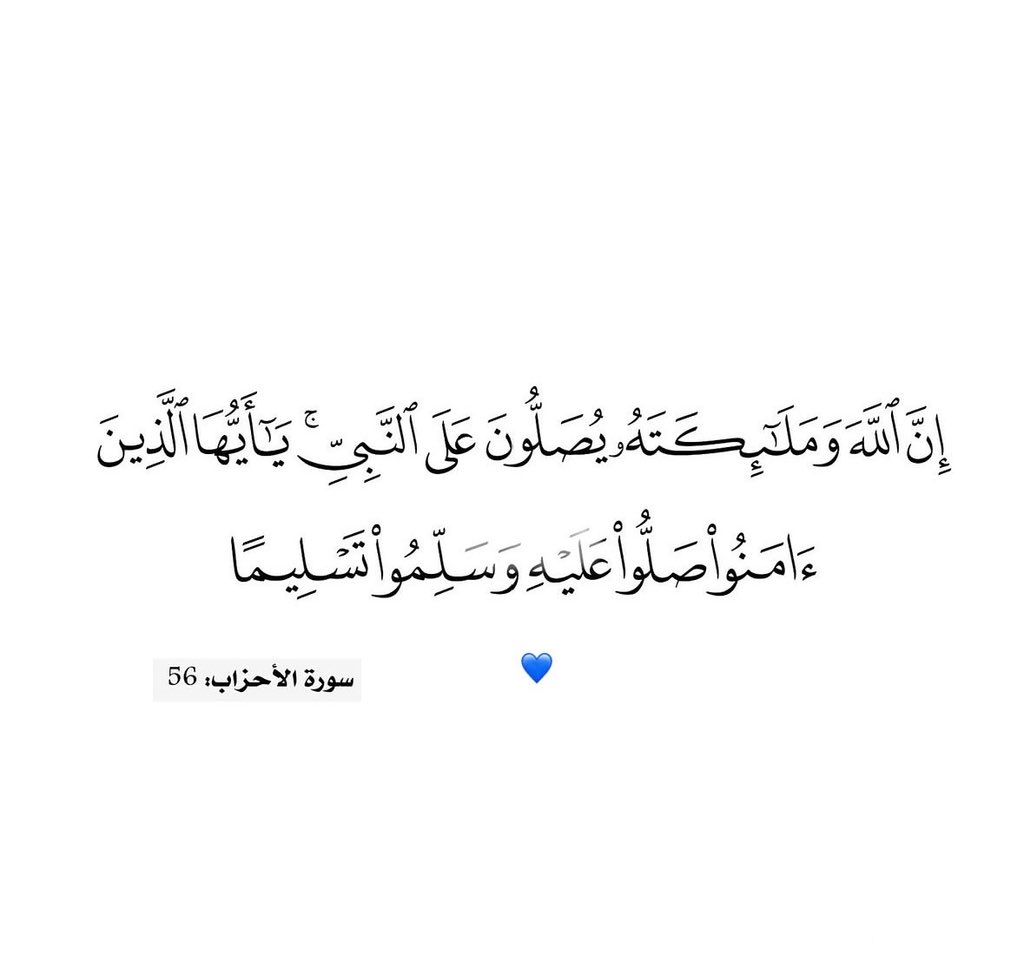 إِنَّ ٱللَّهَ وَمَلَـٰٓئِكَتَهُۥ يُصَلُّونَ عَلَى ٱلنَّبِىِّ ۚ يَـٰٓأَيُّهَا ٱلَّذِينَ
ءَامَنُوا۟ صَلُّوا۟ عَلَيْهِ وَسَلِّمُوا۟ تَسْلِيمًا
💙
سورة الأحزاب: 56